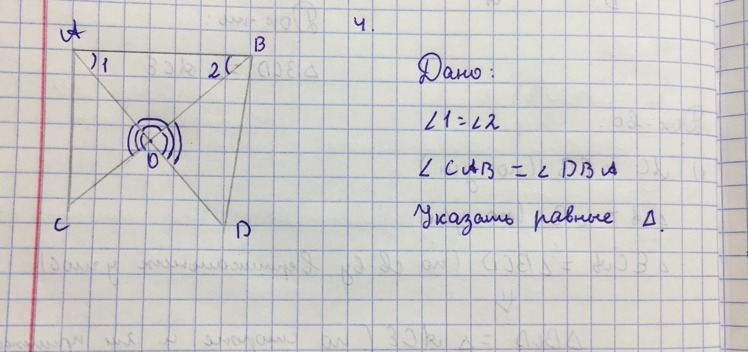 4.
A
B
1
2
Дано:
∠1=∠2
∠CAB = ∠DBA
O
Указать равные Δ.
C
D